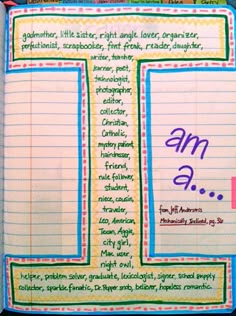 godmother, little sister, right angle lover, organizer,
perfectionist, scrapbooker, font freak, reader, daughter,
writer, teacher,
learner, poet,
technologist,
photographer,
editor,
collector,
Christian,
Catholic,
mystery patient,
hairdresser,
friend,
rule follower,
student,
niece, cousin,
traveler,
Leo, American,
Texan, Aggie,
city girl,
Mac user,
night owl,
helper, problem solver, graduate, lexicologist, signer, school supply
collector, sparkle fanatic, Dr. Pepper snob, believer, hopeless romantic.
am
a....
from Jeff Anderson's
Mechanically Inclined, pg.